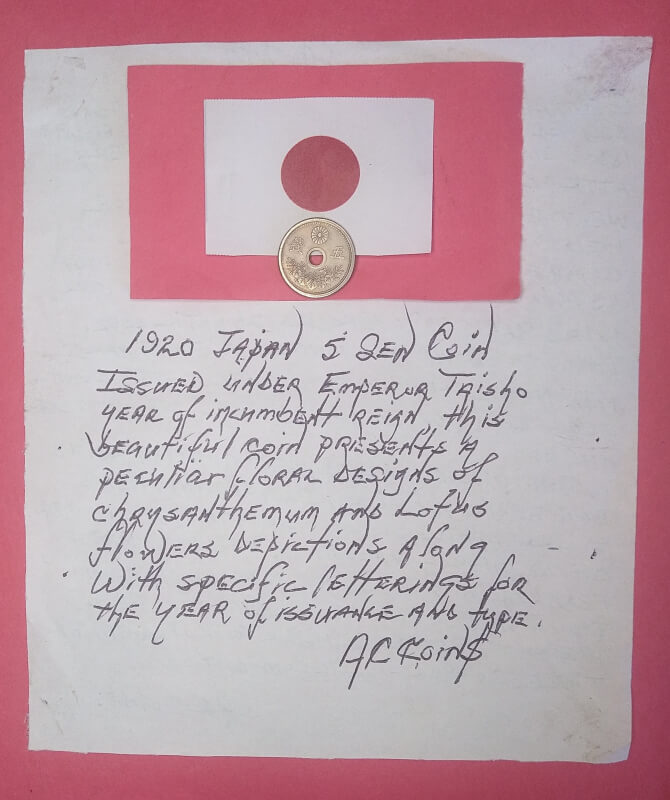 五
1920 JAPAN 5 SEN Coin
ISSUED UNDER EMPEROR TAISHO
YEAR of incumbent REIGN, this
beautiful coin PRESENTS A
peculiar floral DESIGNS of
chrysanthemum AND Lotus
flowers DEPICTIONS Along
With specific letterings for
the YEAR of issuance AND type.
AC Coin$